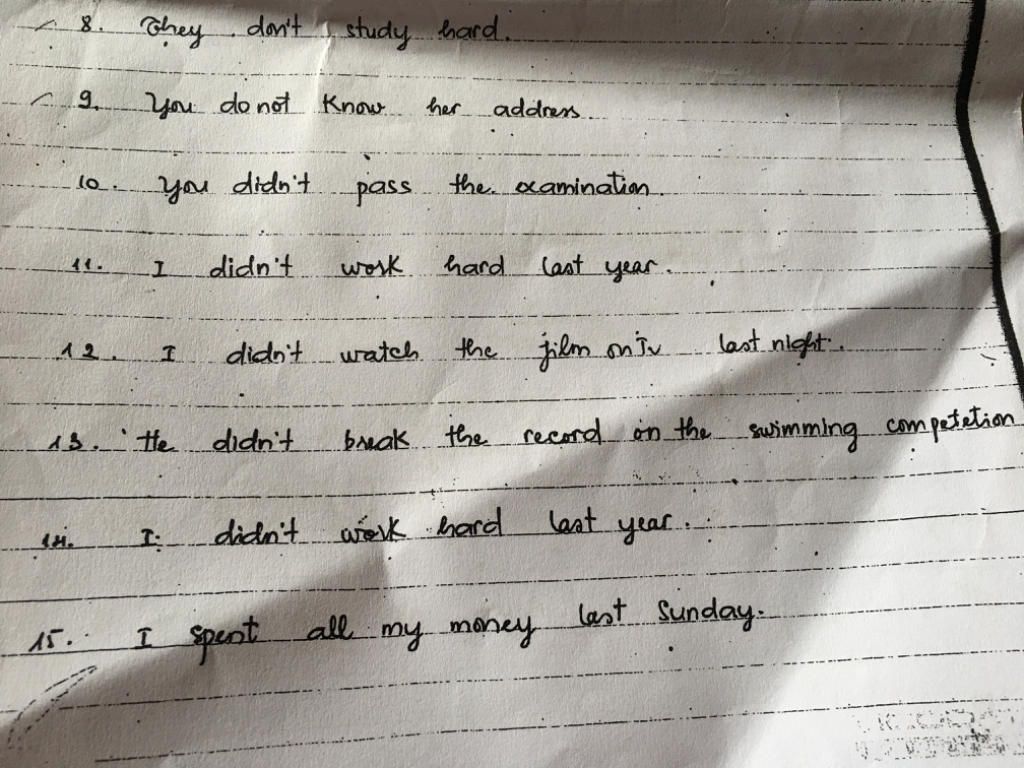 8. They don't study hard.
9. You do not know her address
10. You didn't pass the examination.
11. I didn't work hard last year.
12. I didn't watch the film on Tv last night.
13. He didn't break the record on the swimming competetion
14. I didn't work hard last year.
15. I spent all my money last Sunday.